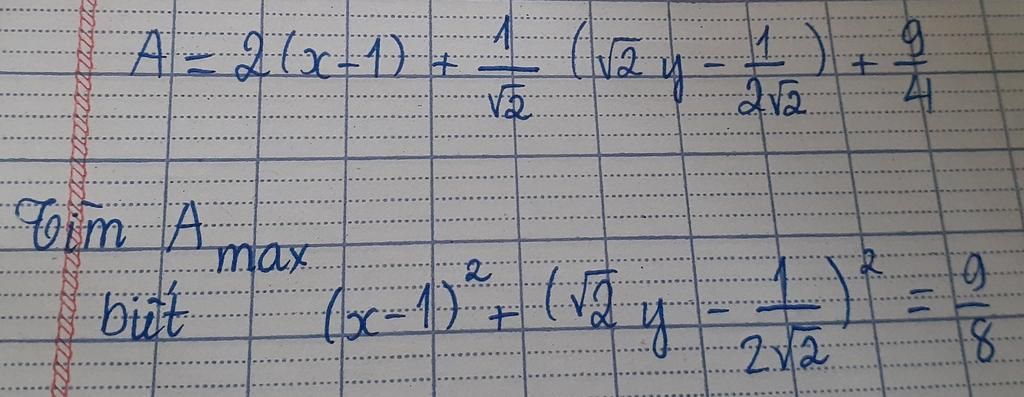 A = 2(x-1) + \frac{1}{\sqrt{2}} (\sqrt{2}y - \frac{1}{2\sqrt{2}}) + \frac{9}{4}
Tìm A_{max}
biết (x-1)^2 + (\sqrt{2}y - \frac{1}{2\sqrt{2}})^2 = \frac{9}{8}